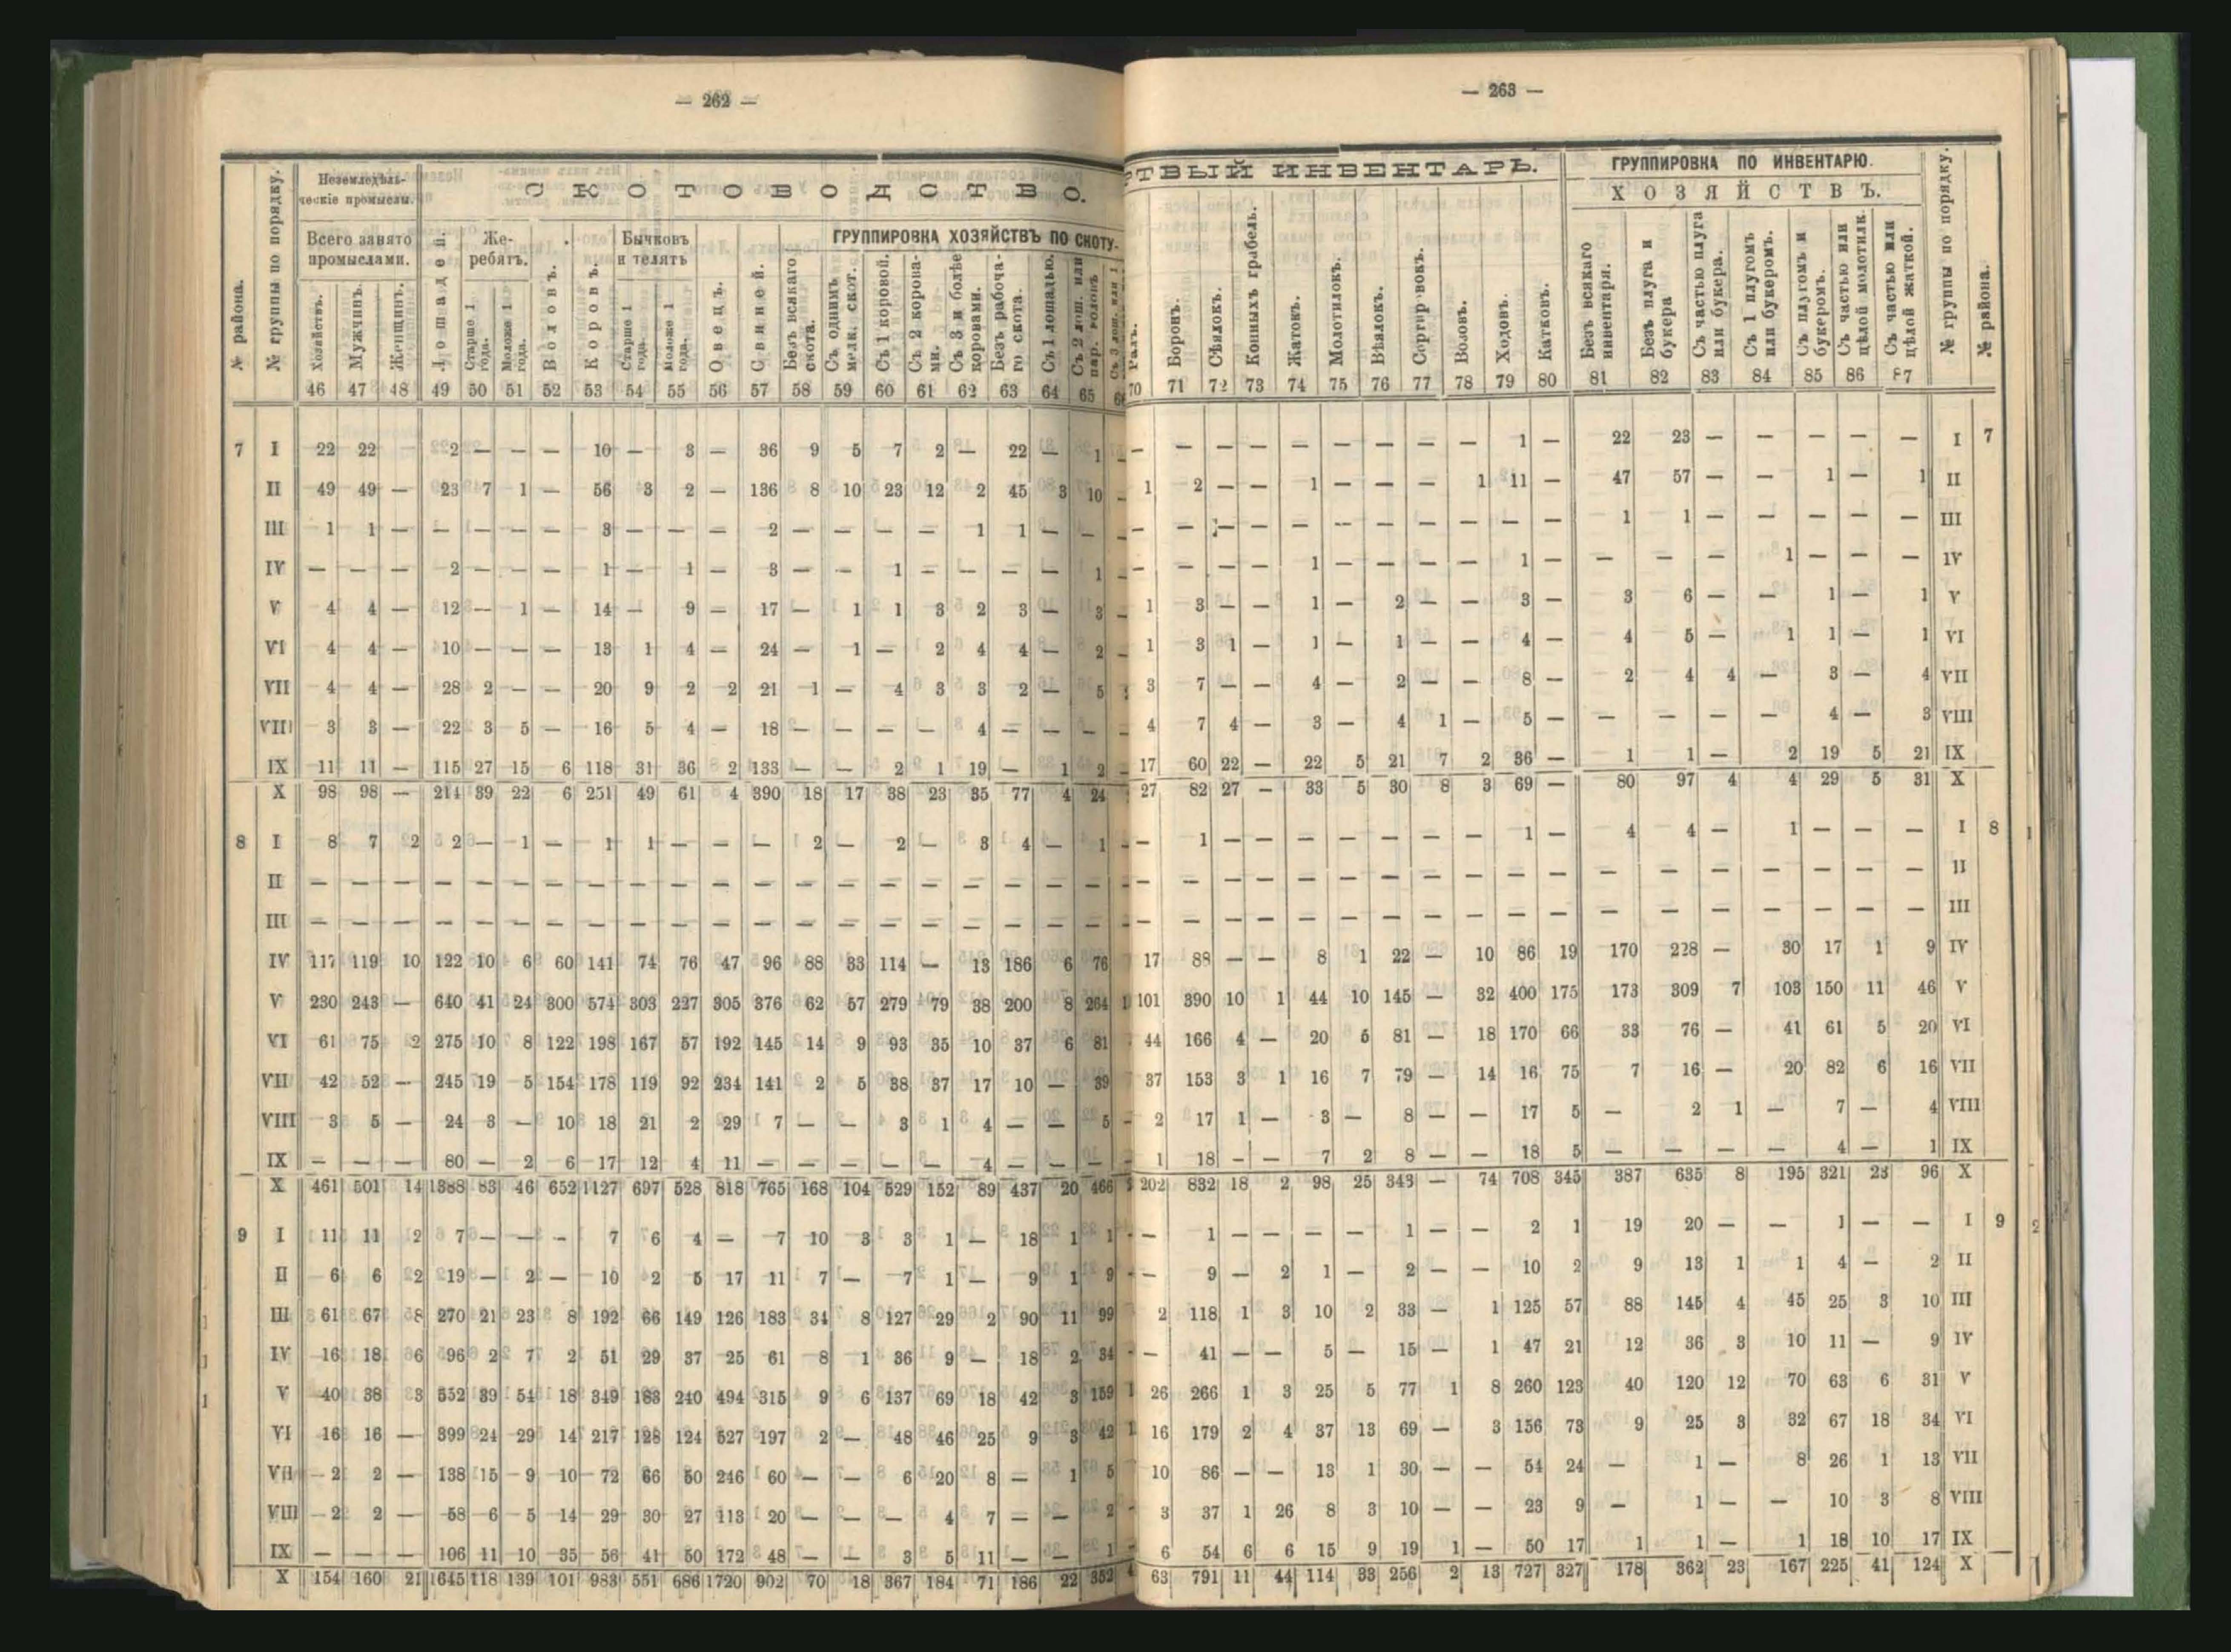 — 262 —
№ района.
№ группы по порядку.
Неземледѣль-
ческіе промыслы.
СКОТОВОДСТВО.
Всего занято
промыслами.
Лошадей.
Же-
ребятъ.
Воловъ.
Коровъ.
Бычковъ
и телятъ
Овецъ.
Свиней.
ГРУППИРОВКА ХОЗЯЙСТВЪ ПО СКОТУ.
Хозяйствъ. Мужчинъ. Женщинъ. Старше 1 года. Моложе 1 года. Старше 1 года. Моложе 1 года. Безъ всякаго скота. Съ однимъ мелк. скот. Съ 1 коровой. Съ 2 корова-ми. Съ 3 и болѣе коровами. Безъ рабоча-го скота. Съ 1 лошадью. Съ 2 лош. или
46 47 48 49 50 51 52 53 54 55 56 57 58 59 60 61 62 63 64 65
7 I 22 22 2 — — — 10 — 3 — 36 9 5 7 2 — 22 — 1
II 49 49 — 23 7 1 — 56 3 2 — 136 8 10 23 12 2 45 3 10
III 1 1 — — — — — 3 — — — 2 — — — — 1 1 — —
IV — — — 2 — — — 1 — 1 — 3 — — 1 — — — — 1
V 4 4 — 12 — 1 — 14 — 9 — 17 — 1 1 3 2 3 — 3
VI 4 4 — 10 — — — 13 1 4 — 24 — 1 — 2 4 4 — 2
VII 4 4 — 28 2 — — 20 9 2 2 21 1 — 4 3 3 2 — 5
VIII 3 3 — 22 3 5 — 16 5 4 — 18 — — — — 4 — — —
IX 11 11 — 115 27 15 6 118 31 36 2 133 — — 2 1 19 — 1 2
X 98 98 — 214 39 22 6 251 49 61 4 390 18 17 38 23 35 77 4 24
8 I 8 7 2 2 — 1 — 1 1 — — — 2 — 2 — 3 4 — 1
II — — — — — — — — — — — — — — — — — — — —
III — — — — — — — — — — — — — — — — — — — —
IV 117 119 10 122 10 6 60 141 74 76 47 96 88 33 114 — 13 186 6 76
V 230 243 — 640 41 24 300 574 303 227 305 376 62 57 279 79 38 200 8 264
VI 61 75 2 275 10 8 122 198 167 57 192 145 14 9 93 35 10 37 6 81
VII 42 52 — 245 19 5 154 178 119 92 234 141 2 5 38 37 17 10 — 39
VIII 3 5 — 24 3 — 10 18 21 2 29 7 — — 3 1 4 — — 5
IX — — — 80 — 2 6 17 12 4 11 — — — — — 4 — — —
X 461 501 14 1388 83 46 652 1127 697 528 818 765 168 104 529 152 89 437 20 466
9 I 11 11 2 7 — — — 7 6 4 — 7 10 3 3 1 — 18 1 1
II 6 6 2 19 — 2 — 10 2 5 17 11 7 — 7 1 — 9 1 9
III 61 67 8 270 21 23 8 192 66 149 126 183 34 8 127 29 2 90 11 99
IV 16 18 6 96 2 7 2 51 29 37 25 61 8 1 36 9 — 18 2 34
V 40 38 3 552 39 54 18 349 183 240 494 315 9 6 137 69 18 42 3 159
VI 16 16 — 399 24 29 14 217 128 124 527 197 2 — 48 46 25 9 3 42
VII 2 2 — 138 15 9 10 72 66 50 246 60 — — 6 20 8 — 1 5
VIII 2 2 — 58 6 5 14 29 30 27 113 20 — — — 4 7 — — 2
IX — — — 106 11 10 35 56 41 50 172 48 — — 3 5 11 — — 1
X 154 160 21 1645 118 139 101 983 551 686 1720 902 70 18 367 184 71 186 22 352
— 263 —
ТВЫЙ ИНВЕНТАРЬ.
ГРУППИРОВКА ПО ИНВЕНТАРЮ.
ХОЗЯЙСТВЪ.
№ группы по порядку.
№ района.
Ралъ. Боронъ. Сѣялокъ. Конныхъ грабель. Жатокъ. Молотилокъ. Вѣялокъ. Сортировокъ. Возовъ. Ходовъ. Катковъ. Безъ всякаго инвентаря. Безъ плуга и букера Съ частью плуга или букера. Съ 1 плугомъ или букеромъ. Съ плугомъ и букеромъ. Съ частью или цѣлой молотилк. Съ частью или цѣлой жаткой.
70 71 72 73 74 75 76 77 78 79 80 81 82 83 84 85 86 87
— — — — — — — — — 1 — 22 23 — — — — — I 7
1 2 — — 1 — — — 1 11 — 47 57 — — 1 — 1 II
— — — — — — — — — — — 1 1 — — — — — III
— — — — 1 — — — — 1 — — — — 1 — — — IV
1 3 — — 1 — 2 — — 3 — 3 6 — — 1 — 1 V
1 3 1 — 1 — 1 — — 4 — 4 5 — 1 1 — 1 VI
3 7 — — 4 — 2 — — 8 — 2 4 4 — 3 — 4 VII
4 7 4 — 3 — 4 1 — 5 — — — — — 4 — 3 VIII
17 60 22 — 22 5 21 7 2 36 — 1 1 — 2 19 5 21 IX
27 82 27 — 33 5 30 8 3 69 — 80 97 4 4 29 5 31 X
— 1 — — — — — — — 1 — 4 4 — 1 — — — I 8
— — — — — — — — — — — — — — — — — — II
— — — — — — — — — — — — — — — — — — III
17 88 — — 8 1 22 — 10 86 19 170 228 — 30 17 1 9 IV
101 390 10 1 44 10 145 — 32 400 175 173 309 7 103 150 11 46 V
44 166 4 — 20 5 81 — 18 170 66 33 76 — 41 61 5 20 VI
37 153 3 1 16 7 79 — 14 16 75 7 16 — 20 82 6 16 VII
2 17 1 — 3 — 8 — — 17 5 — 2 1 — 7 — 4 VIII
1 18 — — 7 2 8 — — 18 5 — — — — 4 — 1 IX
202 832 18 2 98 25 343 — 74 708 345 387 635 8 195 321 23 96 X
— 1 — — — — 1 — — 2 1 19 20 — — 1 — — I 9
— 9 — 2 1 — 2 — — 10 2 9 13 1 1 4 — 2 II
2 118 1 3 10 2 33 — 1 125 57 88 145 4 45 25 3 10 III
— 41 — — 5 — 15 — 1 47 21 12 36 3 10 11 — 9 IV
26 266 1 3 25 5 77 1 8 260 123 40 120 12 70 63 6 31 V
16 179 2 4 37 13 69 — 3 156 73 9 25 3 32 67 18 34 VI
10 86 — — 13 1 30 — — 54 24 — 1 — 8 26 1 13 VII
3 37 1 26 8 3 10 — — 23 9 — 1 — — 10 3 8 VIII
6 54 6 6 15 9 19 1 — 50 17 1 1 — 1 18 10 17 IX
63 791 11 44 114 33 256 2 13 727 327 178 362 23 167 225 41 124 X